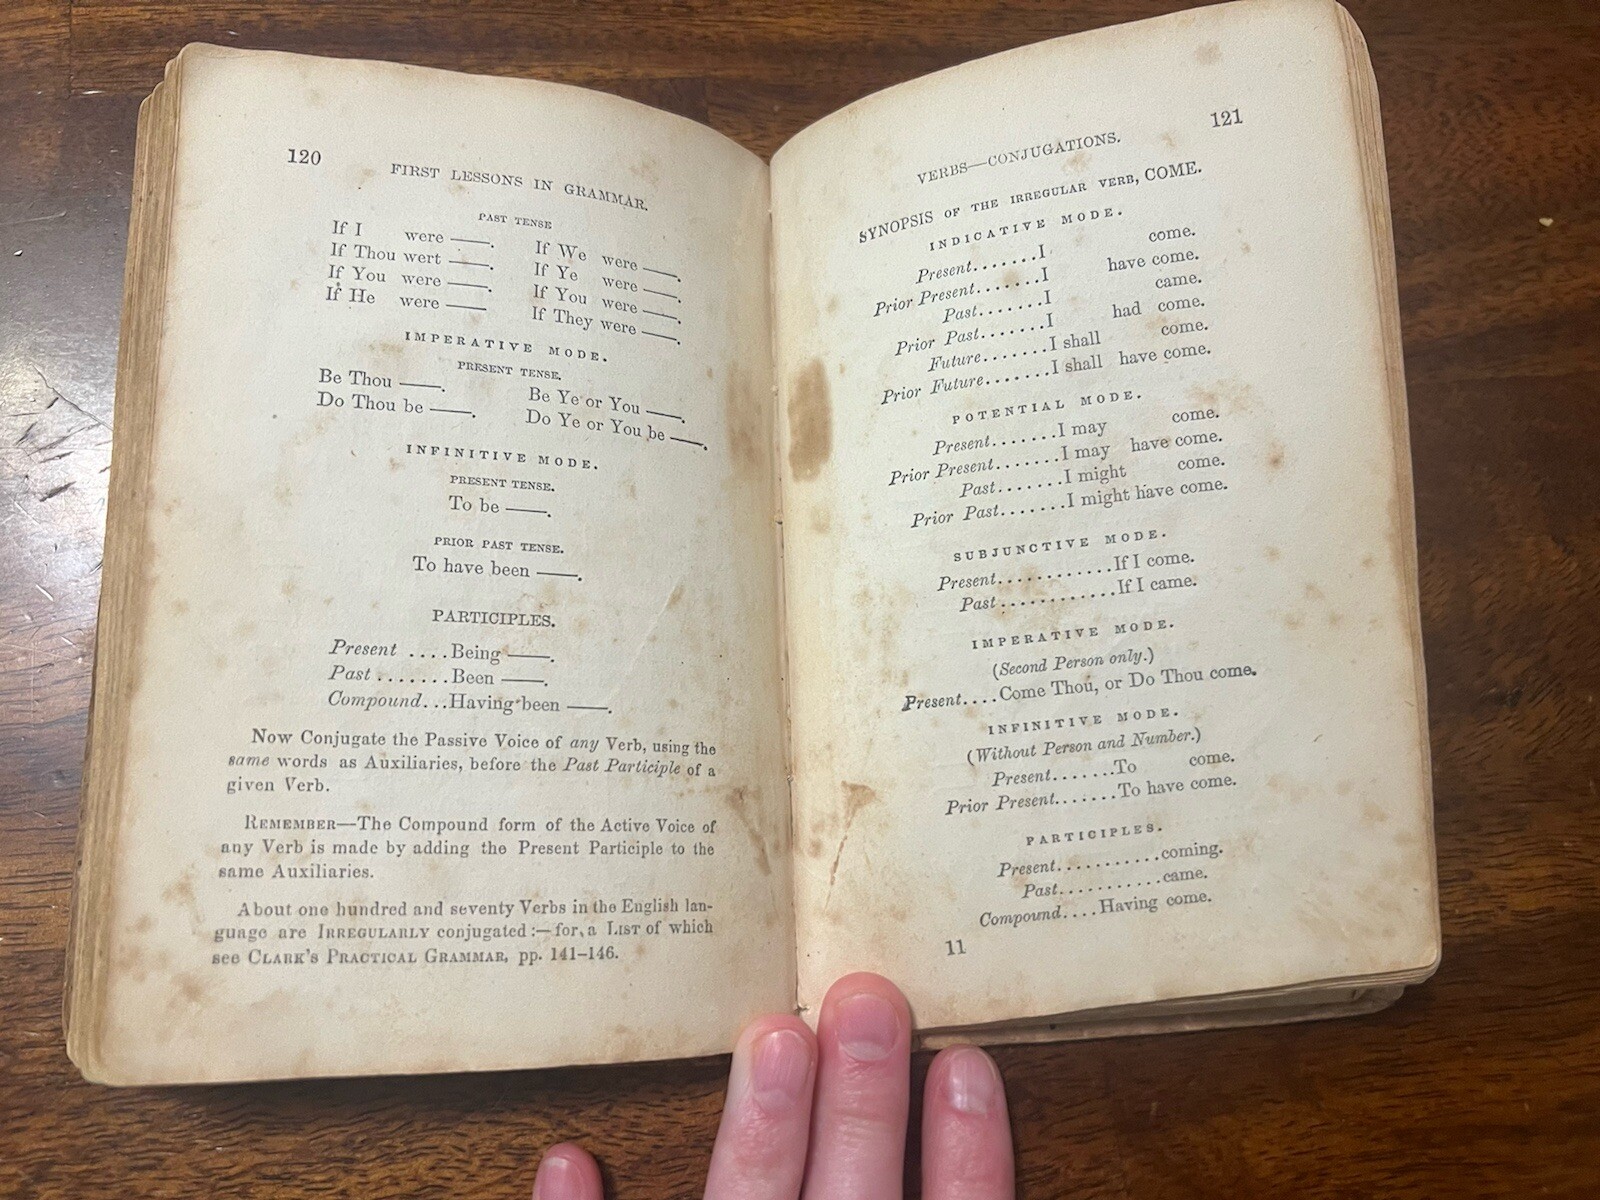 120
FIRST LESSONS IN GRAMMAR.
PAST TENSE
If I were ——. If We were ——.
If Thou wert ——. If Ye were ——.
If You were ——. If You were ——.
If He were —— If They were ——.
IMPERATIVE MODE.
PRESENT TENSE.
Be Thou ——. Be Ye or You ——.
Do Thou be ——. Do Ye or You be ——.
INFINITIVE MODE.
PRESENT TENSE.
To be ——.
PRIOR PAST TENSE.
To have been ——.
PARTICIPLES.
Present ....Being ——.
Past .......Been ——.
Compound...Having been ——.
Now Conjugate the Passive Voice of any Verb, using the
same words as Auxiliaries, before the Past Participle of a
given Verb.
REMEMBER—The Compound form of the Active Voice of
any Verb is made by adding the Present Participle to the
same Auxiliaries.
About one hundred and seventy Verbs in the English lan-
guage are IRREGULARLY conjugated:—for a LIST of which
see CLARK'S PRACTICAL GRAMMAR, pp. 141–146.
121
VERBS—CONJUGATIONS.
SYNOPSIS OF THE IRREGULAR VERB, COME.
INDICATIVE MODE.
Present.......I come.
Prior Present.......I have come.
Past.......I came.
Prior Past.......I had come.
Future.......I shall come.
Prior Future.......I shall have come.
POTENTIAL MODE.
Present.......I may come.
Prior Present.......I may have come.
Past.......I might come.
Prior Past.......I might have come.
SUBJUNCTIVE MODE.
Present............If I come.
Past............If I came.
IMPERATIVE MODE.
(Second Person only.)
Present....Come Thou, or Do Thou come.
INFINITIVE MODE.
(Without Person and Number.)
Present.......To come.
Prior Present.......To have come.
PARTICIPLES.
Present...........coming.
Past...........came.
Compound....Having come.
11